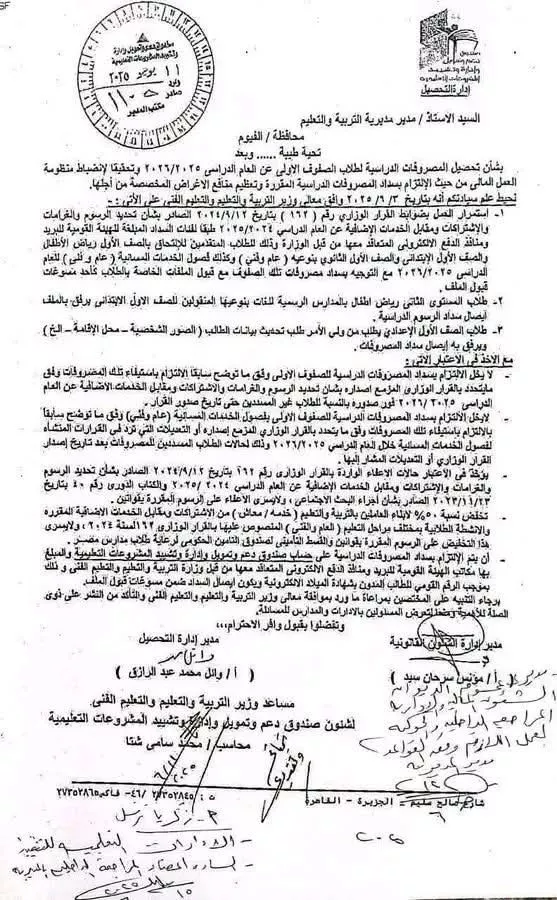 صندوق
دعم وتمويل
وإدارة وتشييد
المشروعات التعليمية
إدارة التحصيل
صندوق دعم وتمويل وإدارة
وتشييد المشروعات التعليمية
١١ يونيو ٢٠٢٥
صادر
مكتب المدير
السيد الاستاذ / مدير مديرية التربية والتعليم
محافظة / الفيوم
تحية طيبة ...... وبعد
بشأن تحصيل المصروفات الدراسية لطلاب الصفوف الاولى عن العام الدراسى ٢٠٢٦/٢٠٢٥ وتحقيقا لإنضباط منظومة
العمل المالى من حيث الإلتزام بسداد المصروفات الدراسية المقررة وتعظيم منافع الاغراض المخصصة من أجلها.
نحيط علم سيادتكم أنه بتاريخ ٢٠٢٥/٦/٣ وافق معالى وزير التربية والتعليم والتعليم الفنى على الأتى :-
١- إستمرار العمل بضوابط القرار الوزاري رقم (١٦٢) بتاريخ ٢٠٢٤/٩/١٢ الصادر بشأن تحديد الرسوم والغرامات
والإشتراكات ومقابل الخدمات الإضافية عن العام الدراسى ٢٠٢٥/٢٠٢٤ طبقا لفئات السداد المبلغة للهيئة القومية للبريد
ومنافذ الدفع الالكترونى المتعاقد معها من قبل الوزارة وذلك للطلاب المتقدمين للإلتحاق بالصف الأول رياض الأطفال
والصف الأول الإبتدائى والصف الأول الثانوى بنوعيه (عام وفني) وكذلك فصول الخدمات المسائية (عام و فنى) للعام
الدراسى ٢٠٢٦/٢٠٢٥ مع التوجيه بسداد مصروفات تلك الصفوف مع قبول الملفات الخاصة بالطلاب كأحد مسوغات
قبول الملف.
٢- طلاب المستوى الثانى رياض اطفال بالمدارس الرسمية للغات بنوعيها المنقولين للصف الاول الابتدائى يرفق بالملف
ايصال سداد الرسوم الدراسية.
٣- طلاب الصف الأول الإعدادي يطلب من ولي الأمر طلب تحديث بيانات الطالب (الصور الشخصية – محل الإقامة – الخ)
ويرفق به إيصال سداد المصروفات.
مع الاخذ فى الاعتبار الاتى :-
- لا يخل الإلتزام بسداد المصروفات الدراسية للصفوف الاولى وفق ما توضح سابقاً الالتزام باستيفاء تلك المصروفات وفق
مايتحدد بالقرار الوزاري المزمع إصداره بشأن تحديد الرسوم والغرامات والإشتراكات ومقابل الخدمات الاضافية عن العام
الدراسى ٢٠٢٦/٢٠٢٥ فور صدوره بالنسبة للطلاب غير المسددين حتى تاريخ صدور القرار.
- لايخل الالتزام بسداد المصروفات الدراسية للصفوف الاولى بفصول الخدمات المسائية (عام وفني) وفق ما توضح سابقاً
بالالتزام باستيفاء تلك المصروفات وفق ما يتحدد بالقرار الوزاري المزمع إصداره او التعديلات التى ترد فى القرارات المنشأه
لفصول الخدمات المسائية خلال العام الدراسى ٢٠٢٦/٢٠٢٥ وذلك لحالات الطلاب المسددين للمصروفات بعد تاريخ إصدار
القرار الوزاري أو التعديلات المشار إليها.
- يؤخذ فى الاعتبار حالات الاعفاء الواردة بالقرار الوزارى رقم ١٦٢ بتاريخ ٢٠٢٤/٩/١٢ الصادر بشأن تحديد الرسوم
والغرامات والإشتراكات ومقابل الخدمات الإضافية عن العام الدراسى ٢٠٢٥/٢٠٢٤ والكتاب الدورى رقم ٤٠ بتاريخ
٢٠٢٣/١١/٢٣ الصادر بشأن اجراء البحث الاجتماعى ، ولايسرى الاعفاء على الرسوم المقررة بقوانين.
- تخفض نسبة ٥٠٪ لأبناء العاملين بالتربية والتعليم (خدمه / معاش) من الاشتراكات ومقابل الخدمات الاضافية المقررة
والانشطة الطلابية بمختلف مراحل التعليم (العام والفنى) المنصوص عليها بالقرار الوزارى ١٦٢ لسنة ٢٠٢٤ ، ولايسرى
هذا التخفيض على الرسوم المقررة بقوانين والقسط التأمينى لصندوق التأمين الحكومى لرعاية طلاب مدارس مصر.
- أن يتم الإلتزام بسداد المصروفات الدراسية على حساب صندوق دعم وتمويل وإدارة وتشييد المشروعات التعليمية والمبلغ
بها مكاتب الهيئة القومية للبريد ومنافذ الدفع الالكترونى المتعاقد معها من قبل وزارة التربية والتعليم والتعليم الفنى و ذلك
بموجب الرقم القومي للطالب المدون بشهادة الميلاد الالكترونية ويكون ايصال السداد ضمن مسوغات قبول الملف.
برجاء التنبيه على المختصين بمراعاة ما ورد بموافقة معالى وزير التربية والتعليم والتعليم الفنى والتأكد من النشر على ذوى
الصلة للأهمية ومنعا لتعرض المسئولين بالادارات والمدارس للمسائلة.
وتفضلوا بقبول وافر الاحترام،،،
مدير إدارة الشئون القانونية
مدير إدارة التحصيل
أ / مؤنس سرحان سيد
( أ / وائل محمد عبد الرازق )
مساعد وزير التربية والتعليم والتعليم الفنى
لشئون صندوق دعم وتمويل وإدارة وتشييد المشروعات التعليمية
محاسب / محمد سامى شتا
شارع صالح سليم - الجزيرة - القاهرة
ت: ٢٧٣٥٢٨٤٥ /٤٦- فاكس: ٢٧٣٥٢٨٦٥
الإدارات التعليمية للتنفيذ